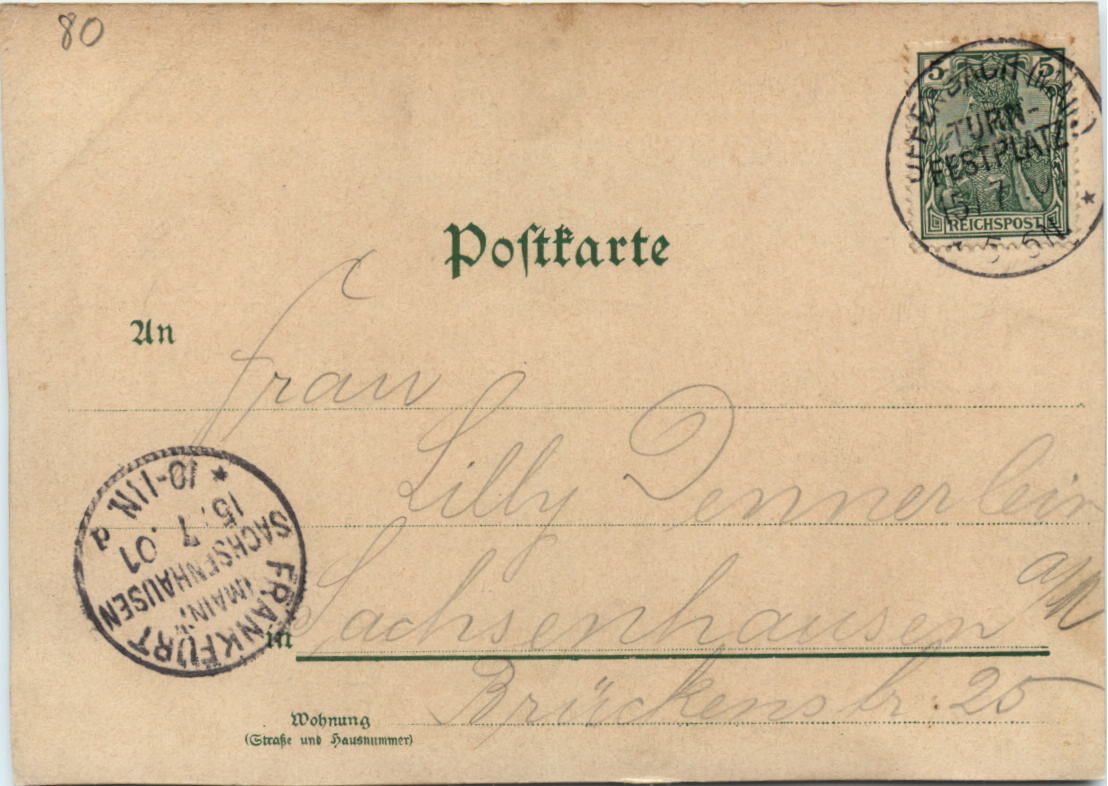 80
5 5
OFFENBACH (MAIN)
TURN-
FESTPLATZ
15 7 01
5-6N
REICHSPOST
Postkarte
An
Frau
Lilly Dennerlein
in Sachsenhausen a/M
Brückenstr. 25
Wohnung
(Straße und Hausnummer)
FRANKFURT
(MAIN)
SACHSENHAUSEN
15. 7. 01
10-11N.